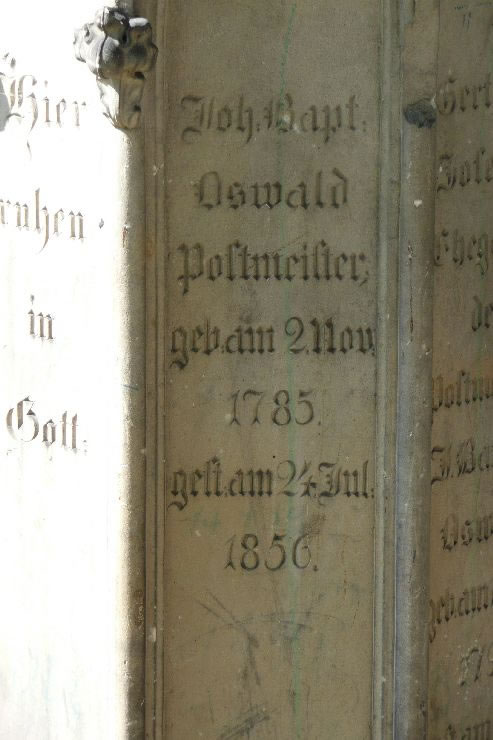 Hier
ruhen
in
Gott.
Joh. Bapt.
Oswald
Postmeister,
geb. am 2. Nov.
1785.
gest. am 24. Jul.
1856.
J. Ba
Osw
geb. am